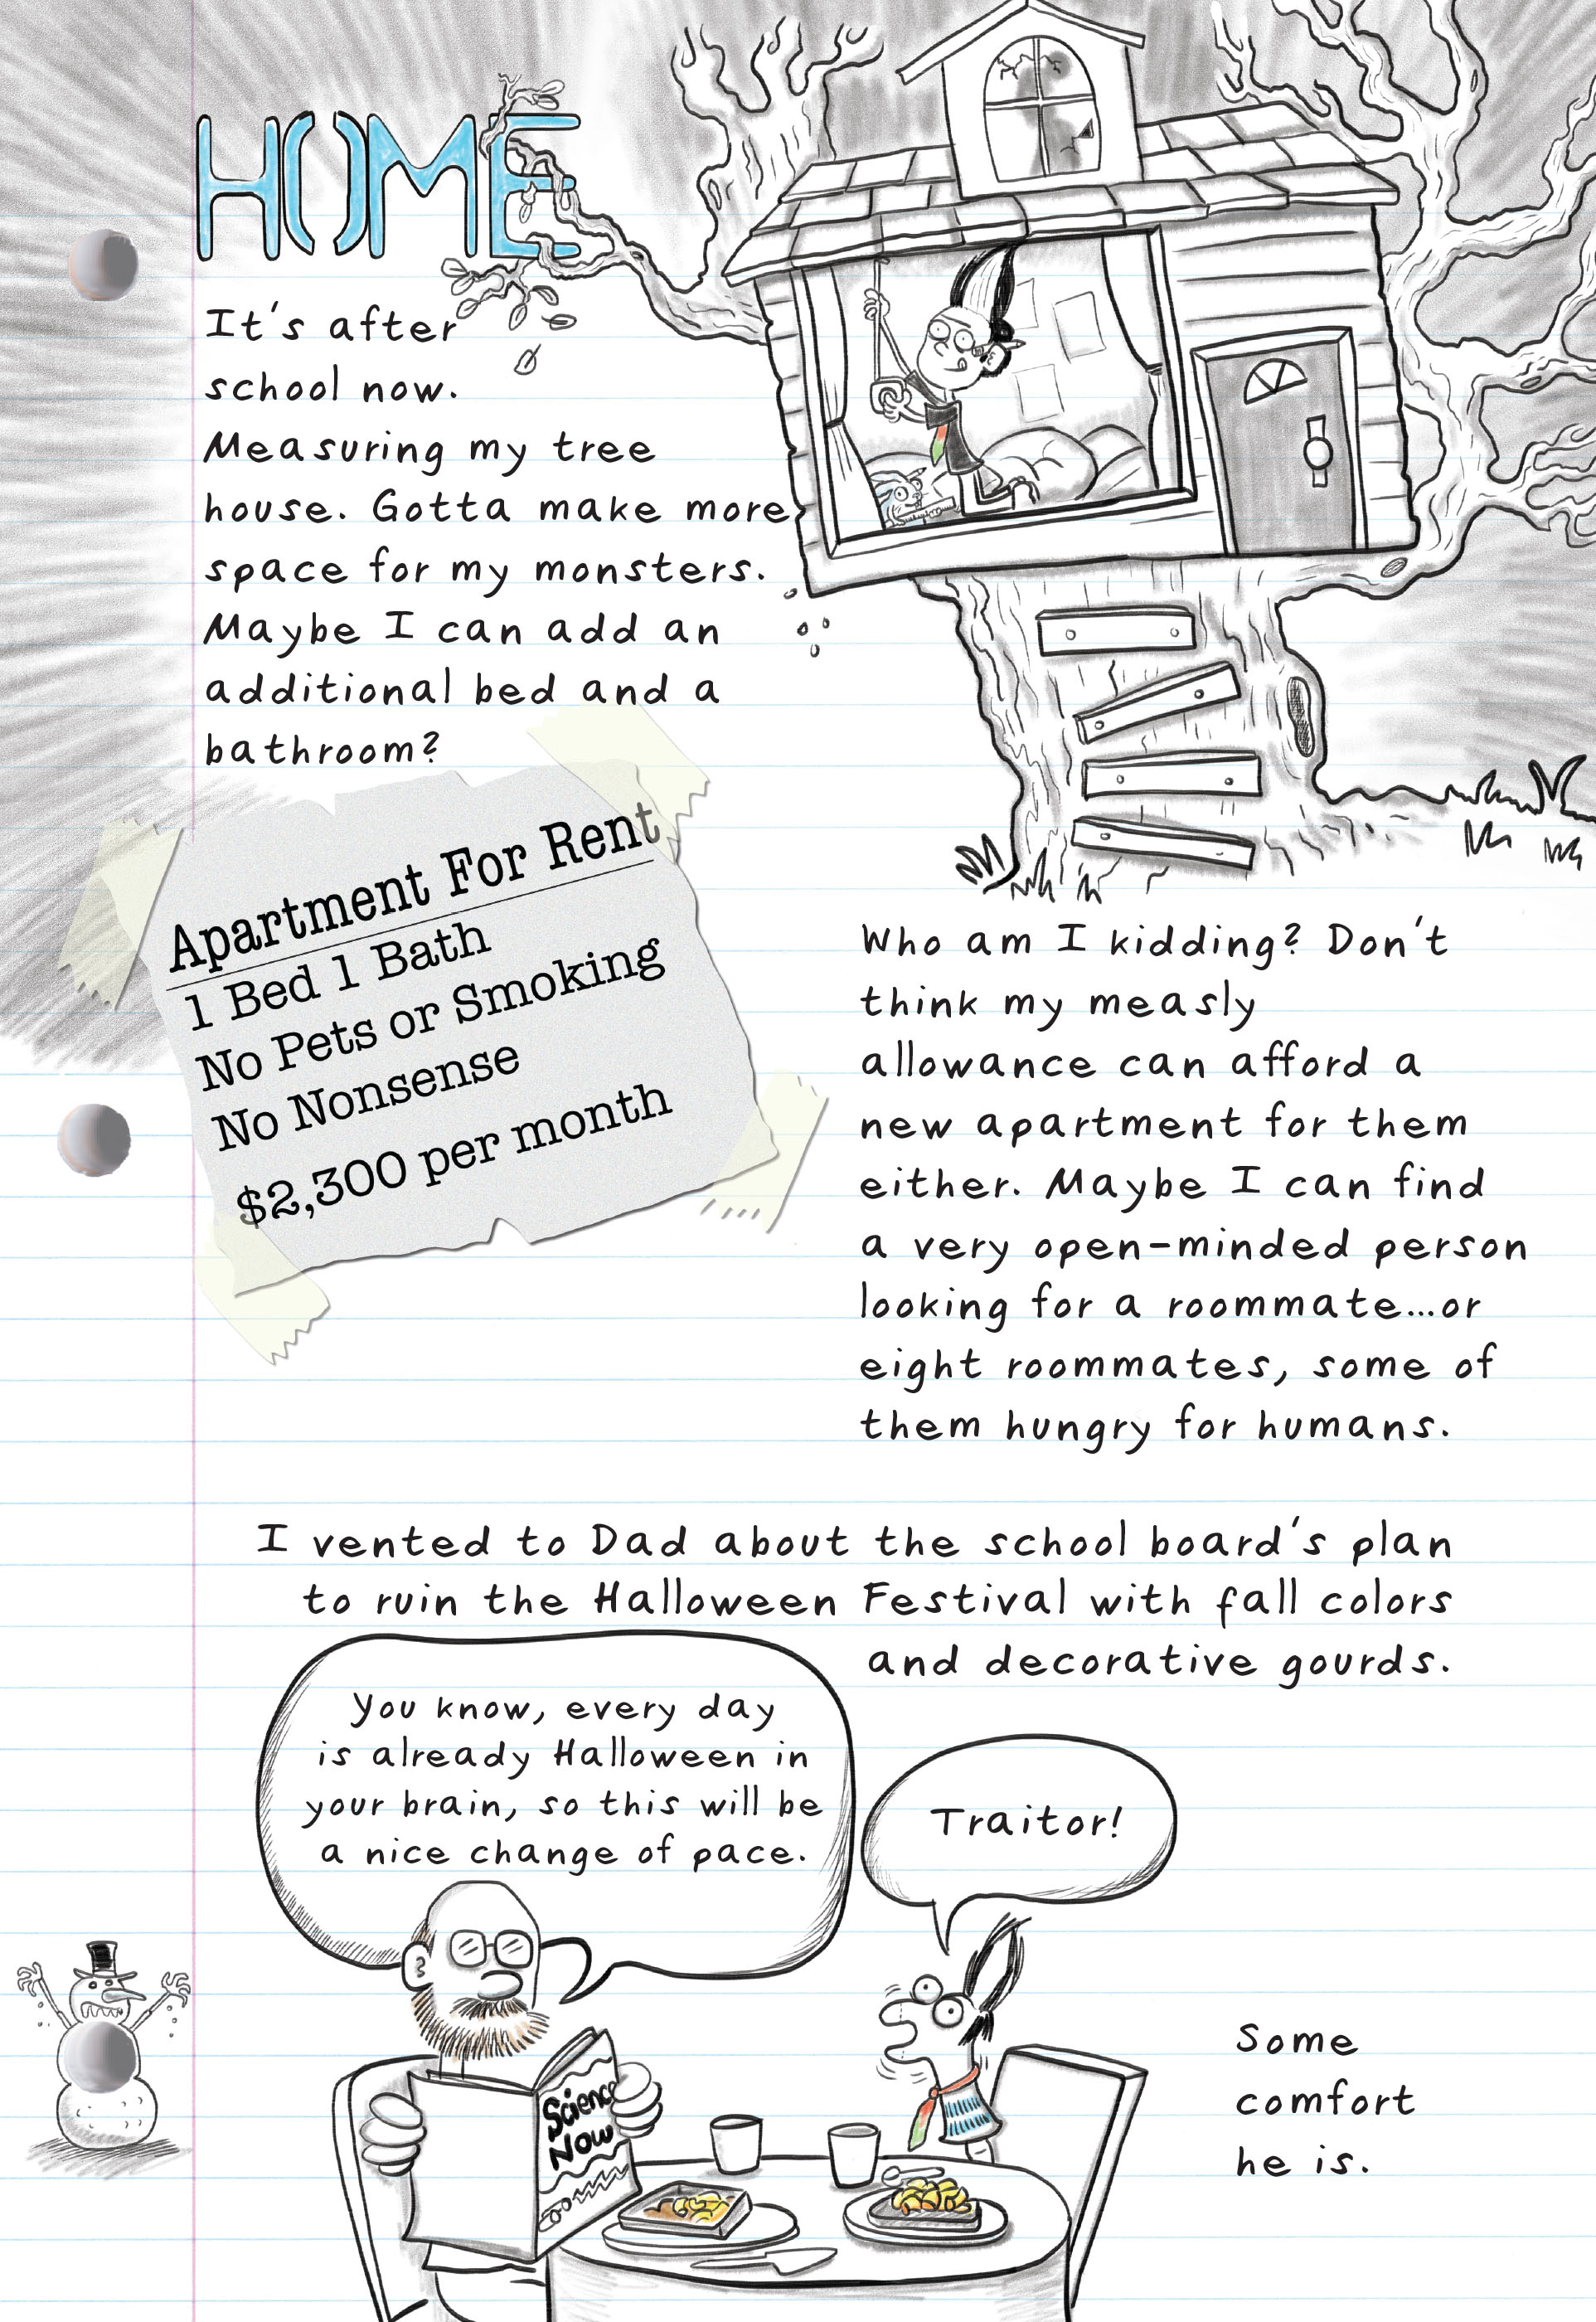 HOME
It's after
school now.
Measuring my tree
house. Gotta make more
space for my monsters.
Maybe I can add an
additional bed and a
bathroom?
Apartment For Rent
1 Bed 1 Bath
No Pets or Smoking
No Nonsense
$2,300 per month
Who am I kidding? Don't
think my measly
allowance can afford a
new apartment for them
either. Maybe I can find
a very open-minded person
looking for a roommate...or
eight roommates, some of
them hungry for humans.
I vented to Dad about the school board's plan
to ruin the Halloween Festival with fall colors
and decorative gourds.
You know, every day
is already Halloween in
your brain, so this will be
a nice change of pace.
Traitor!
Science
Now
Some
comfort
he is.